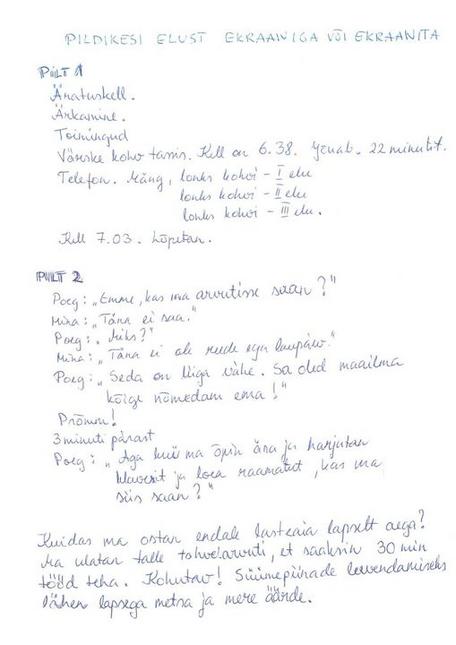 PILDIKESI ELUST EKRAANIGA VÕI EKRAANITA
PILT 1
Äratuskell.
Ärkamine.
Toimingud
Värske kohv tassis. Kell on 6.38. Jeuab. 22 minutit.
Telefon. Mäng, lonks kohvi - I elu
lonks kohvi - II elu
lonks kohvi - III elu.
Kell 7.03. Lõpetan.
PILT 2
Poeg: „Emme, kas ma arvutisse saan?"
Mina: „Täna ei saa."
Poeg: „Miks?"
Mina: „Täna ei ole reede ega laupäev."
Poeg: „Seda on liiga vähe. Sa oled maailma
kõige nõmedam ema!"
Prõmm!
3 minuti pärast
Poeg: „Aga kui ma õpin ära ja harjutan
klaverit ja loen raamatut, kas ma
siis saan?"
Kuidas ma ostan endale lasteaia lapselt aega?
Ma ulatan talle tahvelarvuti, et saaksin 30 min
tööd teha. Kohutav! Süümepiinade leevendamiseks
lähen lapsega metsa ja mere äärde.